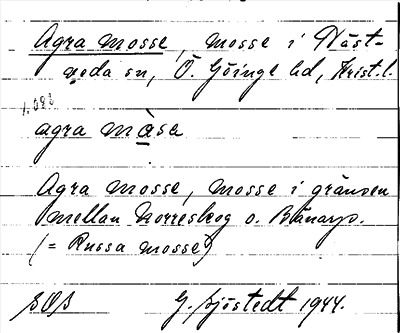 Agra mosse, mosse i Näst-
veda sn, Ö. Göinge hd, Krist.l.
agra màse
Agra mosse, mosse i gränsen
mellan Norreskog o. Bänarp.
(= Russa mosse)
G. Sjöstedt 1944.